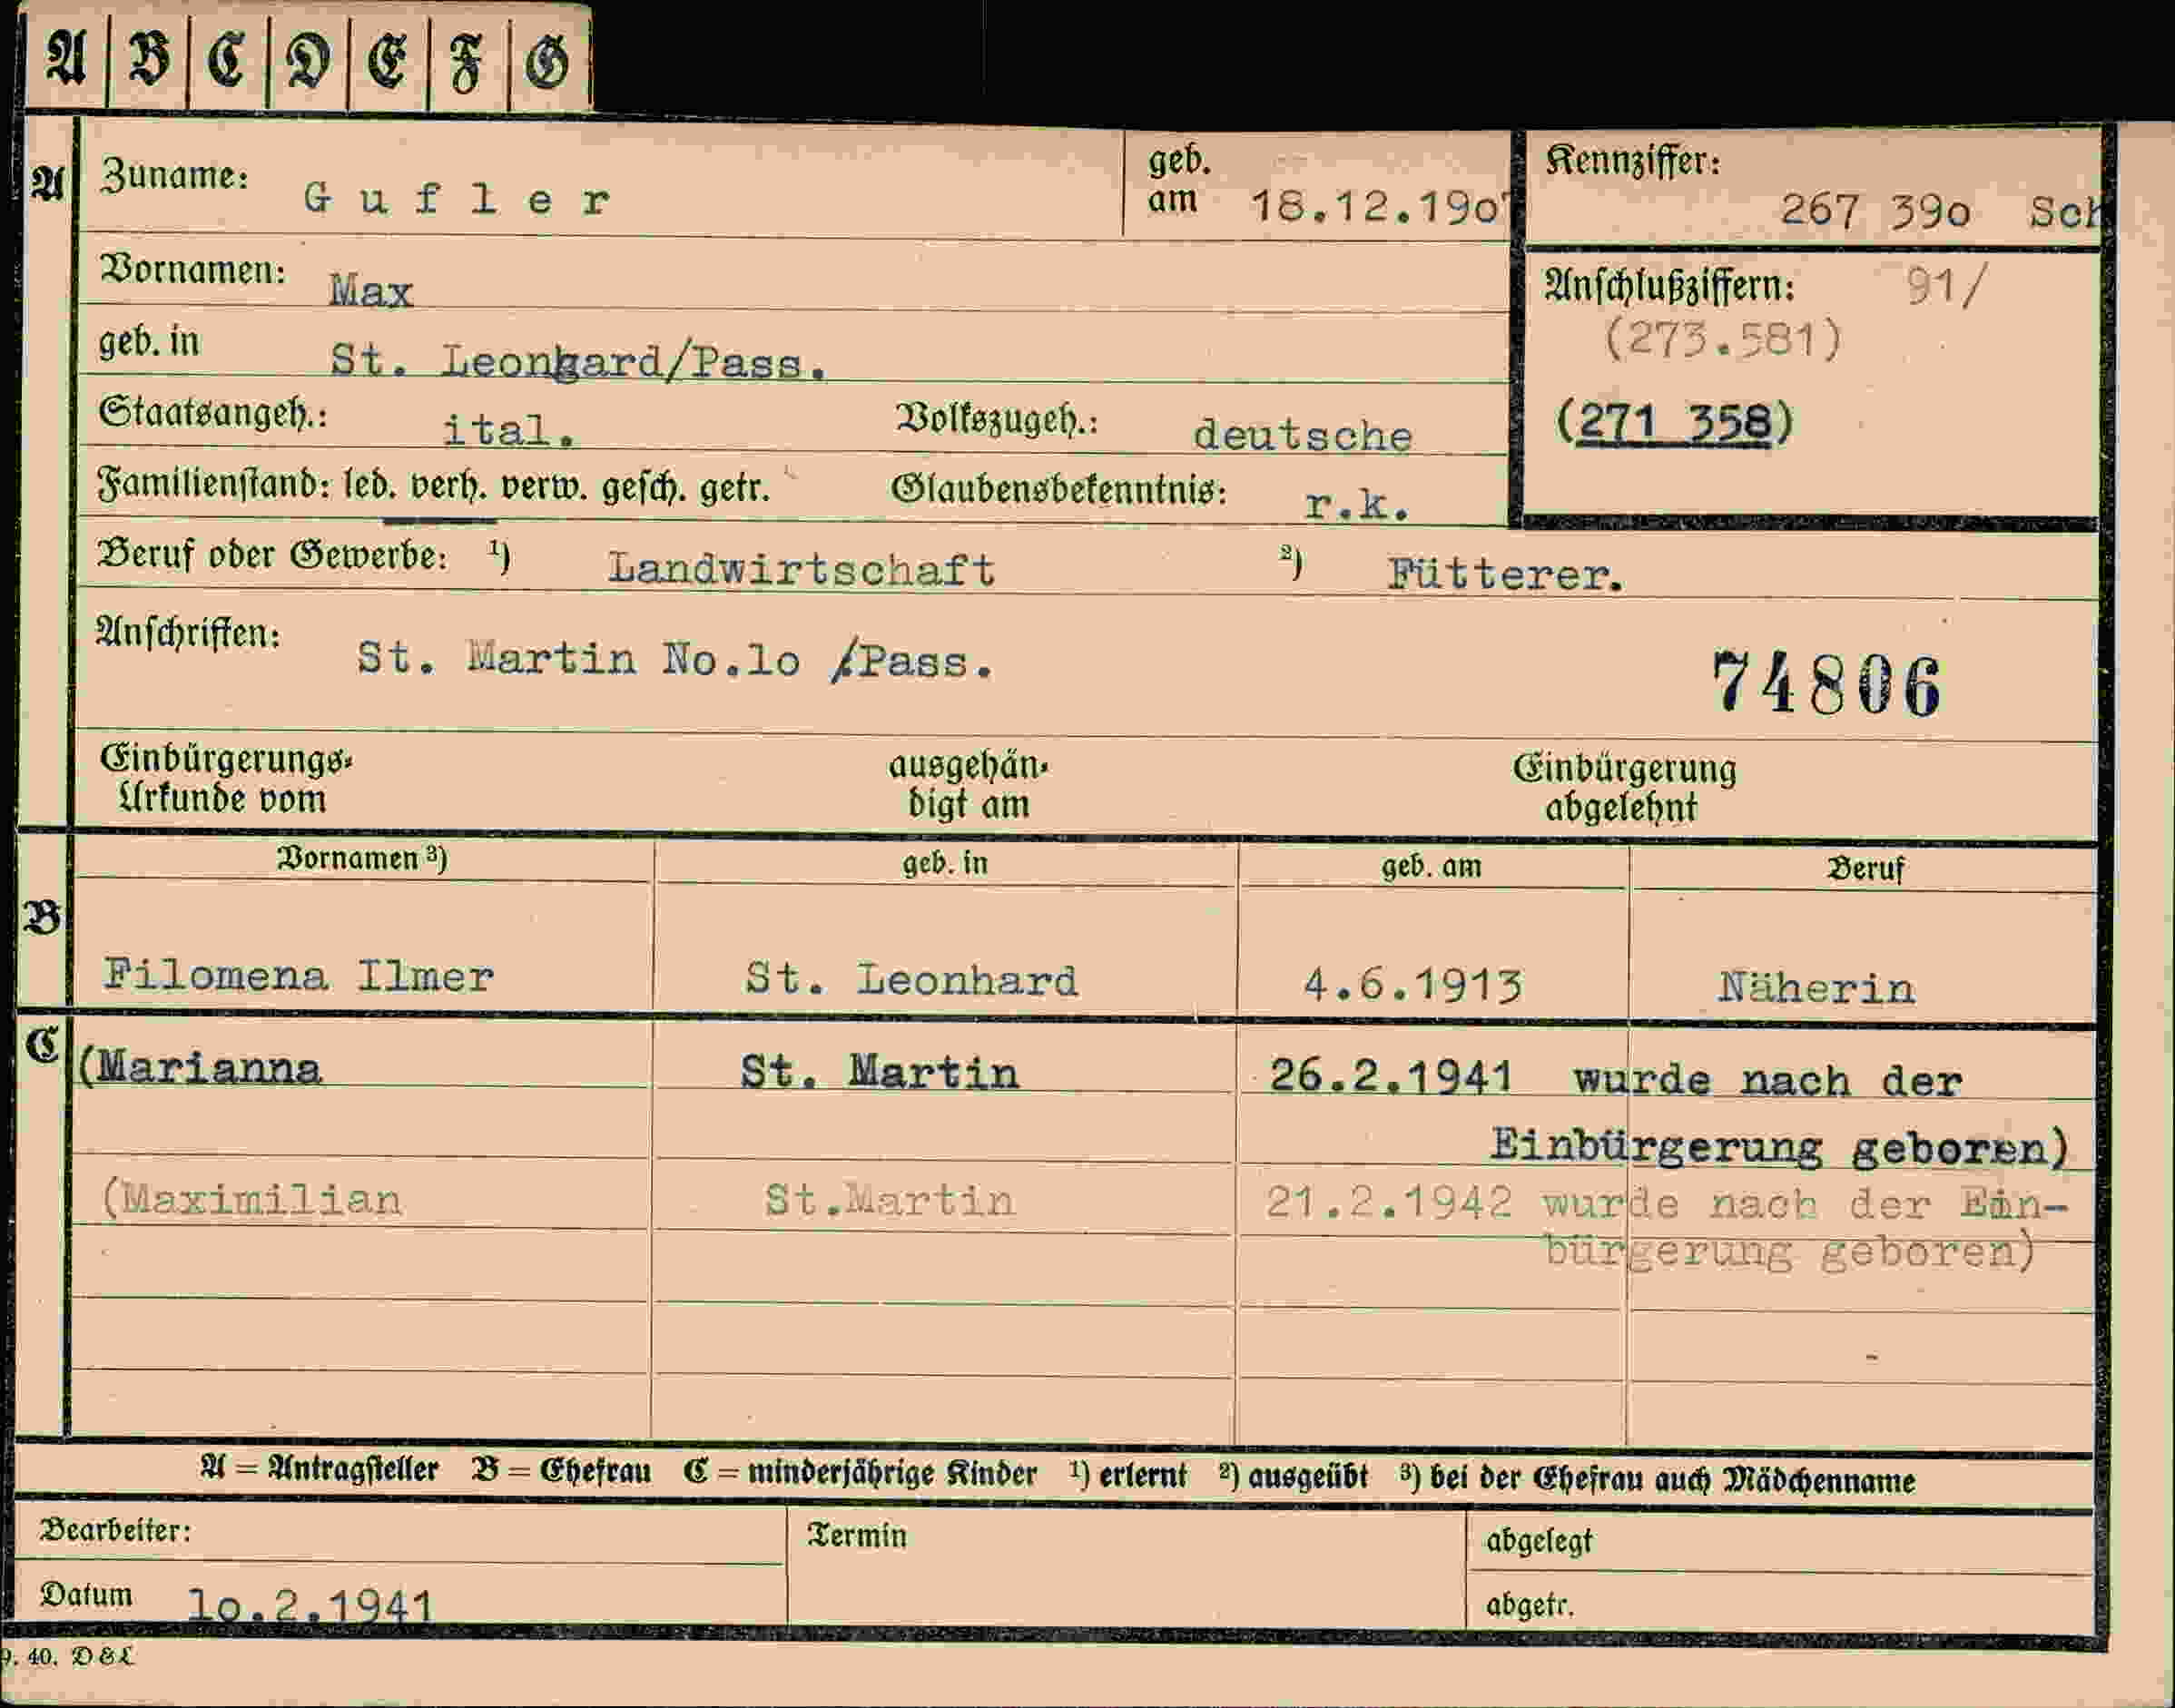 A B C D E F G
A Zuname: Gufler geb. am 18.12.1907 Kennziffer: 267 39o Sch
Vornamen: Max Anschlußziffern: 91/
(273.581)
geb. in St. Leonhard/Pass.
Staatsangeh.: ital. Volkszugeh.: deutsche (271 358)
Familienstand: led. verh. verw. gesch. getr. Glaubensbekenntnis: r.k.
Beruf oder Gewerbe: 1) Landwirtschaft 2) Fütterer.
Anschriften: St. Martin No.lo /Pass. 74806
Einbürgerungs- ausgehän- Einbürgerung
Urkunde vom digt am abgelehnt
Vornamen 3) geb. in geb. am Beruf
B Filomena Ilmer St. Leonhard 4.6.1913 Näherin
C (Marianna St. Martin 26.2.1941 wurde nach der
Einbürgerung geboren)
(Maximilian St.Martin 21.2.1942 wurde nach der Ein-
bürgerung geboren)
A = Antragsteller B = Ehefrau C = minderjährige Kinder 1) erlernt 2) ausgeübt 3) bei der Ehefrau auch Mädchenname
Bearbeiter: Termin abgelegt
Datum lo.2.1941 abgetr.
9. 40. D & L